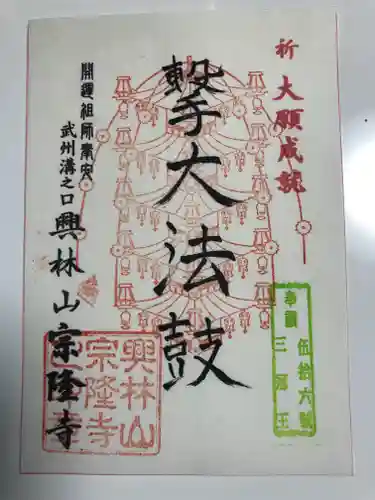 祈 大願成就
奉讃 伍拾六號
三 王
撃大法鼓
開運祖師奉安
武州溝之口 興林山 宗隆寺
興林山
宗隆寺